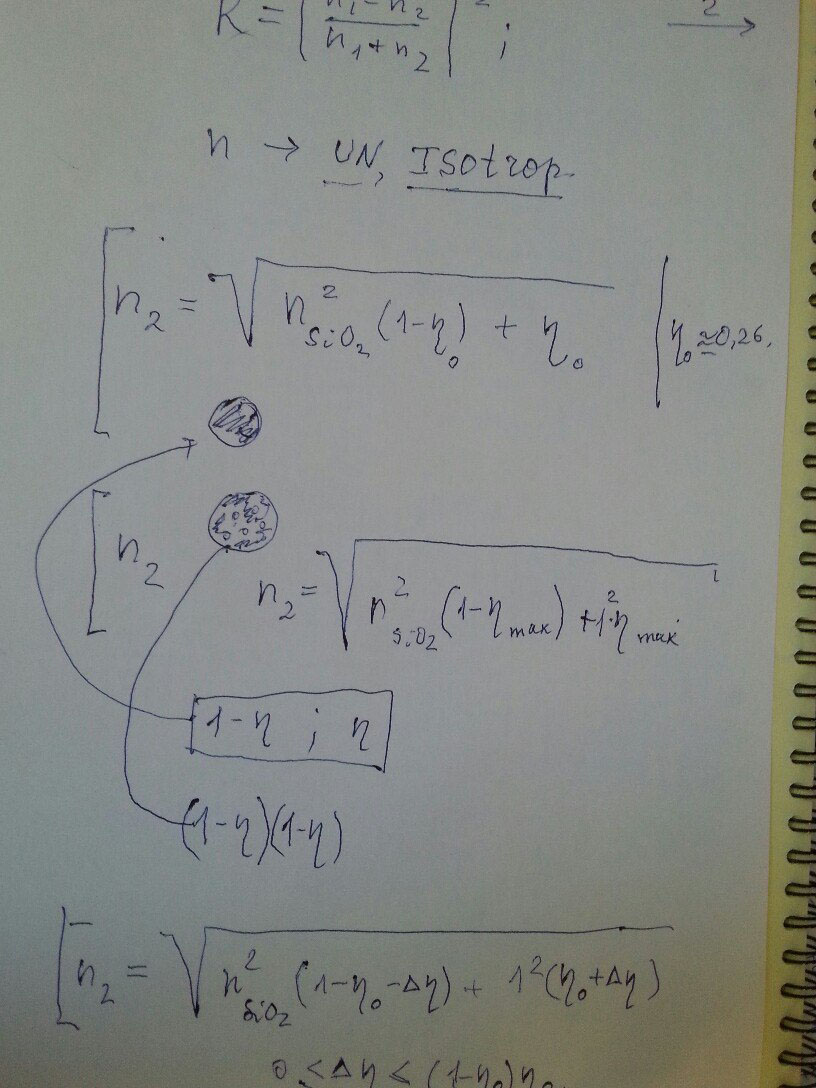 R = | n₁ - n₂ / n₁ + n₂ |² ; 2 →
n → UN, ISotrop.
[ n₂ = √( n²_SiO₂ (1-η₀) + η₀ ) | η₀ ≅ 0,26.
[ n₂
n₂ = √( n²_SiO₂ (1-η_max) + 1²·η_max )
1-η ; η
(1-η)(1-η)
[ n₂ = √( n²_SiO₂ (1-η₀-Δη) + 1²(η₀+Δη) )
0 ≤ Δη ≤ (1-η₀)η₀